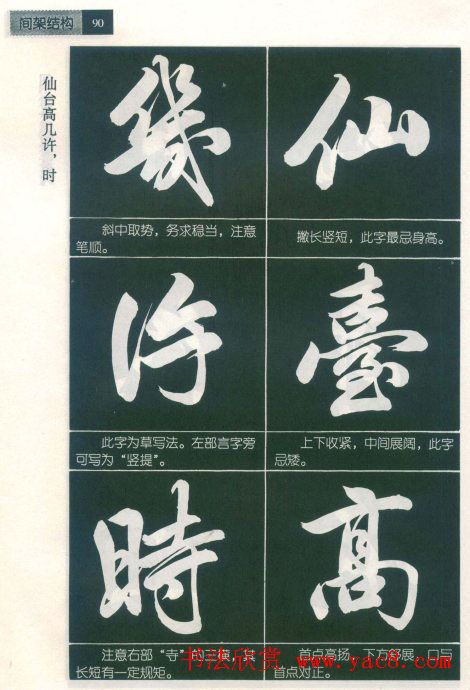 间架结构 90
仙台高几许，时
幾 仙
斜中取势，务求稳当，注意
笔顺。
撇长竖短，此字最忌身高。
许 臺
此字为草写法。左部言字旁
可写为“竖提”。
上下收紧，中间展阔，此字
忌矮。
時 高
注意右部“寺”的三横，其
长短有一定规矩。
首点高扬，下方舒展，口与
首点对正。
书法欣赏 www.yac8.com